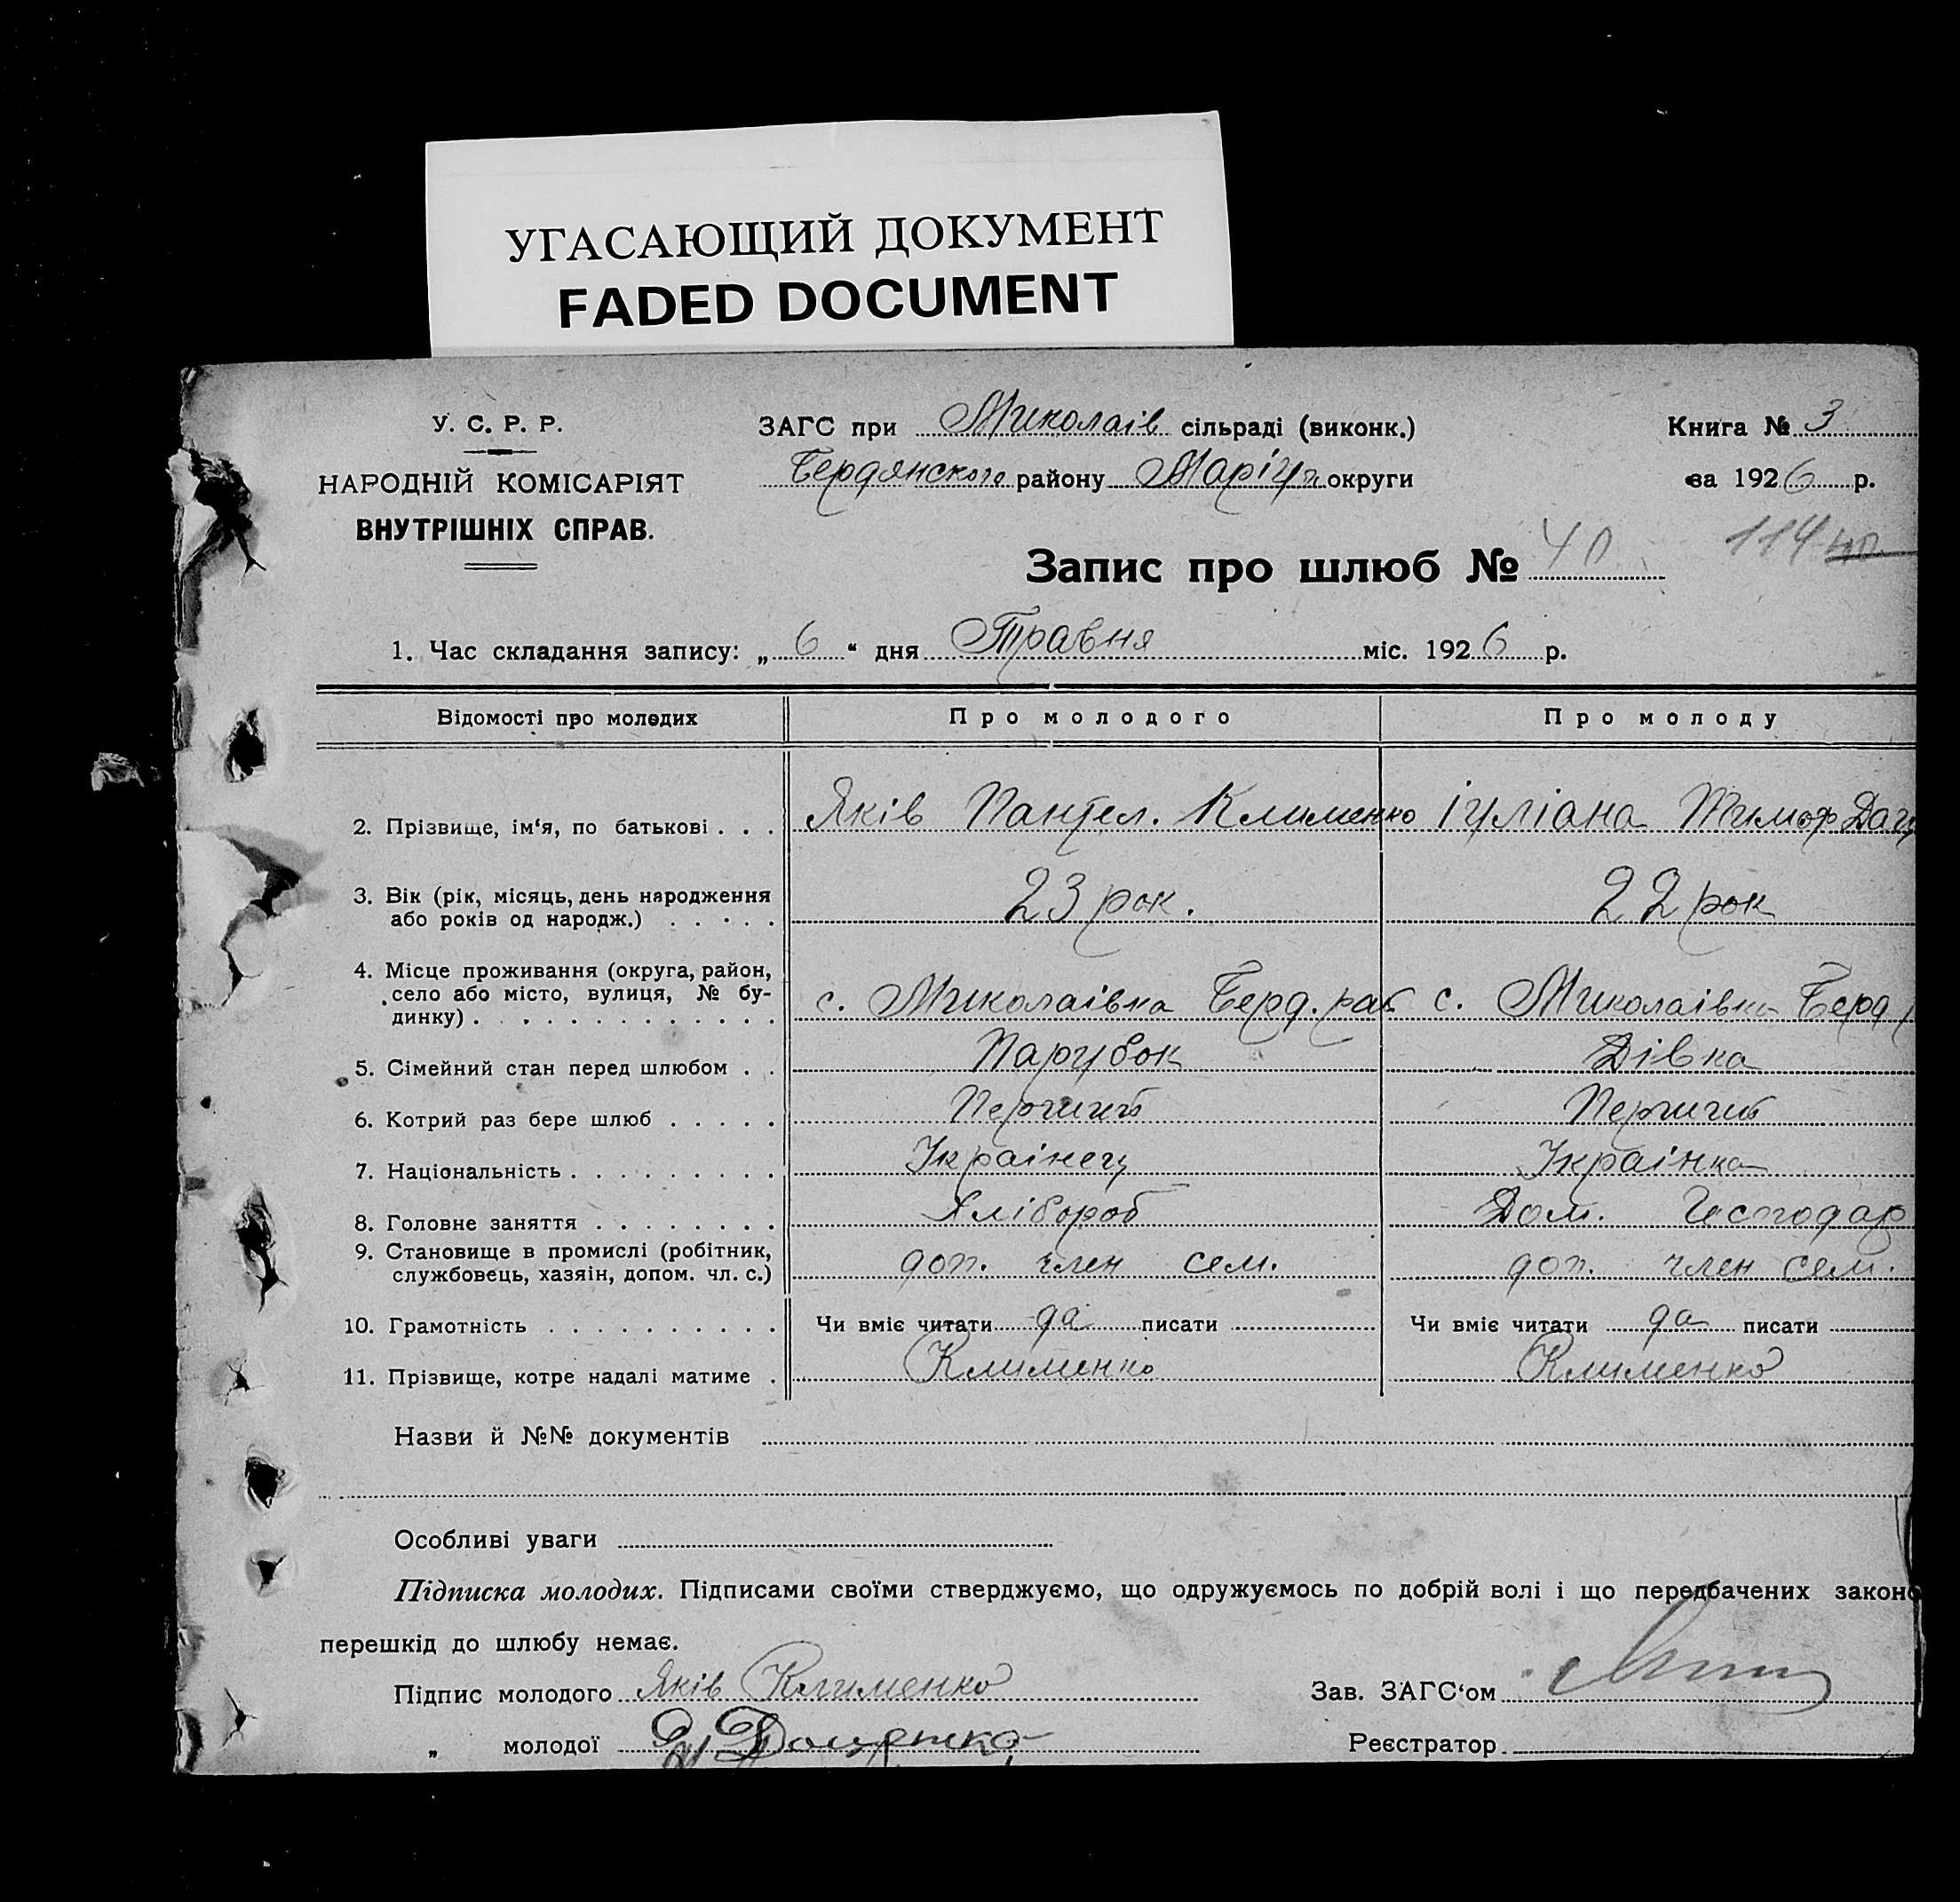 УГАСАЮЩИЙ ДОКУМЕНТ
FADED DOCUMENT
У. С. Р. Р.
НАРОДНІЙ КОМІСАРІЯТ
ВНУТРІШНІХ СПРАВ.
ЗАГС при Миколаів сільраді (виконк.)
Бердянского району Маріуп округи
Книга № 3
за 1926 р.
Запис про шлюб № 40
114
1. Час складання запису: „ 6 “ дня Травня міс. 1926 р.
Відомості про молодих Про молодого Про молоду
2. Прізвище, ім‘я, по батькові . . . Яків Пантел. Клименко Іуліана Тимоф Дац
3. Вік (рік, місяць, день народження
або років од народж.) . . . . . 23 рок. 22 рок
4. Місце проживання (округа, район,
село або місто, вулиця, № бу-
динку) . . . . . . . . . . . . с. Миколаівка Берд. рай с. Миколаівка Берд р
5. Сімейний стан перед шлюбом . . Парубок Дівка
6. Котрий раз бере шлюб . . . . . Перший Перший
7. Національність . . . . . . . . . Украінец Украінка
8. Головне заняття . . . . . . . . Хлібороб Дом. Господар
9. Становище в промислі (робітник,
службовець, хазяін, допом. чл. с.) доп. член сем. доп. член сем.
10. Грамотність . . . . . . . . . . Чи вміє читати да писати Чи вміє читати да писати
11. Прізвище, котре надалі матиме . Клименко Клименко
Назви й №№ документів
Особливі уваги
Підписка молодих. Підписами своїми стверджуємо, що одружуємось по добрій волі і що передбачених законо
перешкід до шлюбу немає.
Підпис молодого Яків Клименко Зав. ЗАГС‘ом
„ молодої Доценко Реєстратор